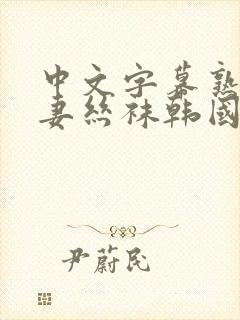 中文字幕熟
妻丝袜韩國
尹蔚民